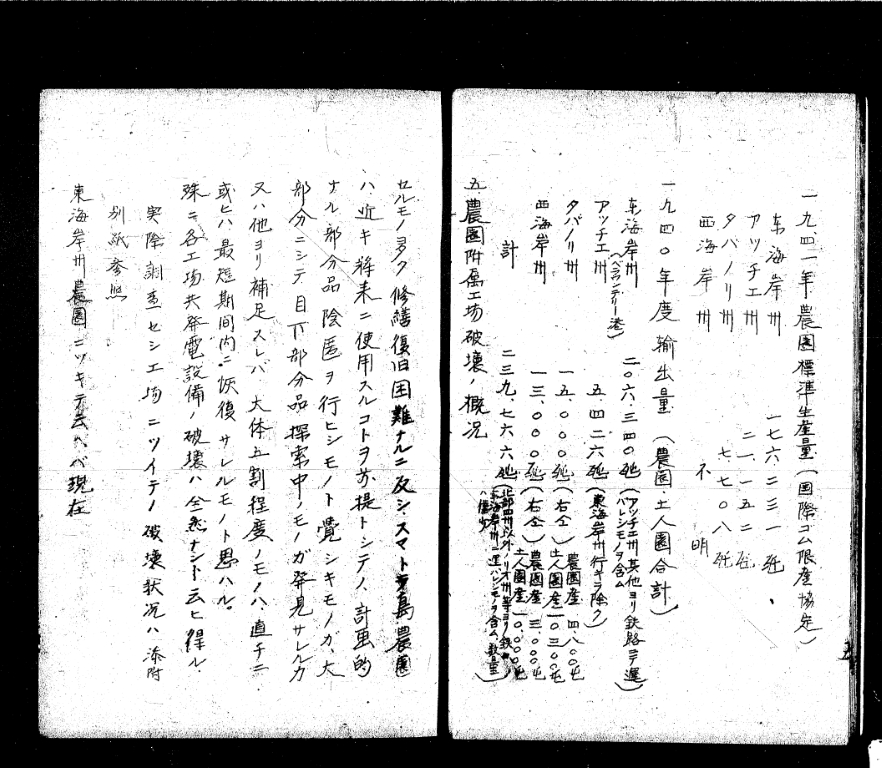 一九四一年農園標準生産量(国際ゴム限産協定)
东海岸州 一七六二三一瓲
アツチエ州 二一、一五二瓲
タパノリ州 七七〇八瓲
西海岸州 不明
一九四〇年度輸出量(農園・土人園合計)
东海岸州(ベラワンデリー港) 二〇六、三四〇瓲(アツチエ州其他ヨリ鉄路ニテ運バレシモノヲ含ム)
アツチエ州 五四二六瓲(東海岸州行キヲ除ク)
タパノリ州 一五、〇〇〇瓲(右仝)農園産 四八〇〇屯 土人園産 一〇三〇〇屯
西海岸州 一三、〇〇〇瓲(右仝)農園産 三、〇〇〇屯 土人園産 一〇、〇〇〇屯
計 二三九、七六六瓲
五、農園附属工場破壊ノ概況
セルモノ多ク修繕復旧困難ナルニ反シ、スマトラ島農園
ハ近キ将来ニ使用スルコトヲ前提トシテノ計画的
ナル部分品隠匿ヲ行ヒシモノト覚シキモノガ、大
部分ニシテ目下部分品探索中ノモノガ発見サレルカ
又ハ他ヨリ補足スレバ大体五割程度ノモノハ直チニ
或ヒハ最短期间内ニ恢復サレルモノト思ハル。
殊ニ各工場共発電設備ノ破壊ハ全然ナシト云ヒ得ル
実際調査セシ工場ニツイテノ破壊状況ハ添附
別紙参照
東海岸州農園ニツキテ云ヘバ現在